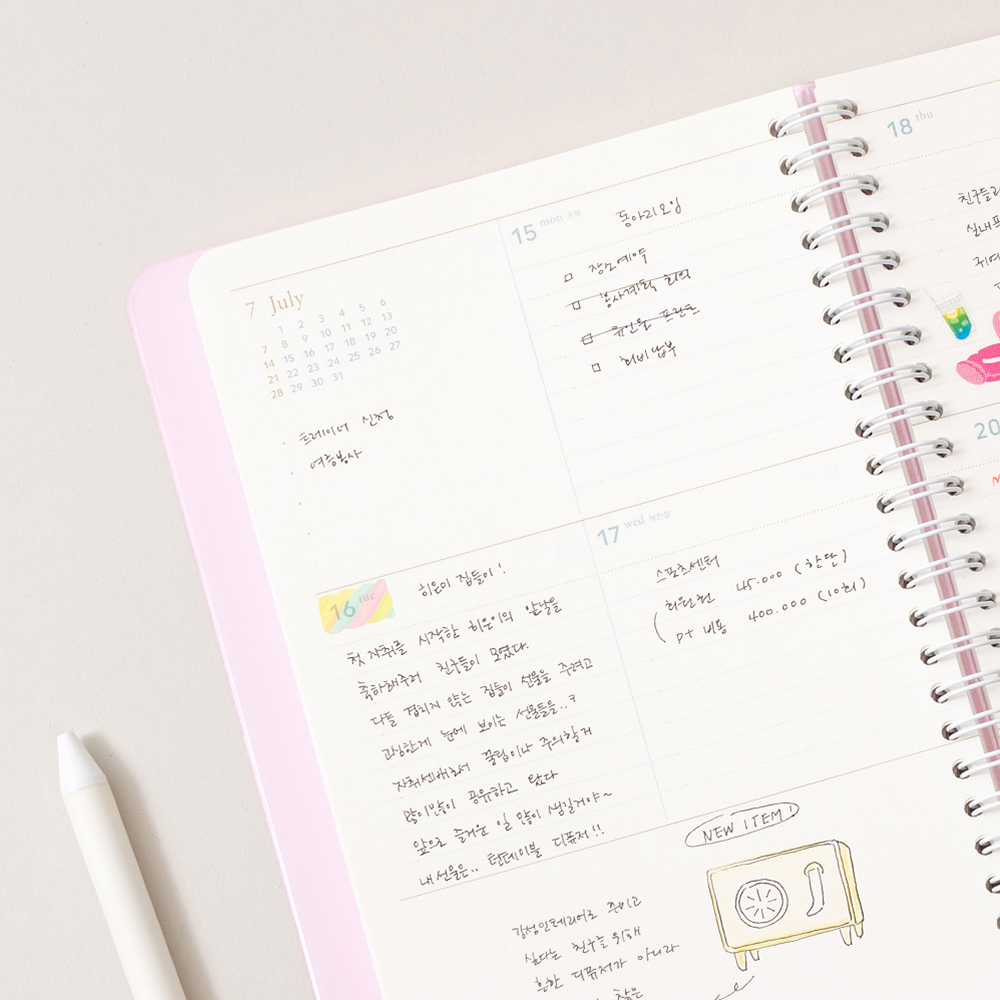 7 July
1 2 3 4 5 6
7 8 9 10 11 12 13
14 15 16 17 18 19 20
21 22 23 24 25 26 27
28 29 30 31
· 트레이너 신청
· 여름봉사
15 mon 초복
동아리모임
□ 장소예약
□ 봉사계획 회의
□ 유인물 프린트
□ 회비납부
16 tue
히윤이 집들이!
첫 자취를 시작한 히윤이의 앞날을
축하해주러 친구들이 모였다.
다들 겹치지 않는 집들이 선물을 주려고
고심한게 눈에 보이는 선물들을..ㅋ
자취선배로서 꿀팁이나 주의할거
많이많이 공유하고 왔다
앞으로 즐거운 일 많이 생길거야~
내 선물은.. 턴테이블 디퓨저!!
17 wed 제헌절
스포츠센터
회원권 45.000 (한달)
pt 비용 400.000 (10회)
NEW ITEM!
감성인테리어로 꾸미고
싶다는 친구를 위해
흔한 디퓨저가 아니라
찾은
18 thu
친구들과
실내
귀여
20